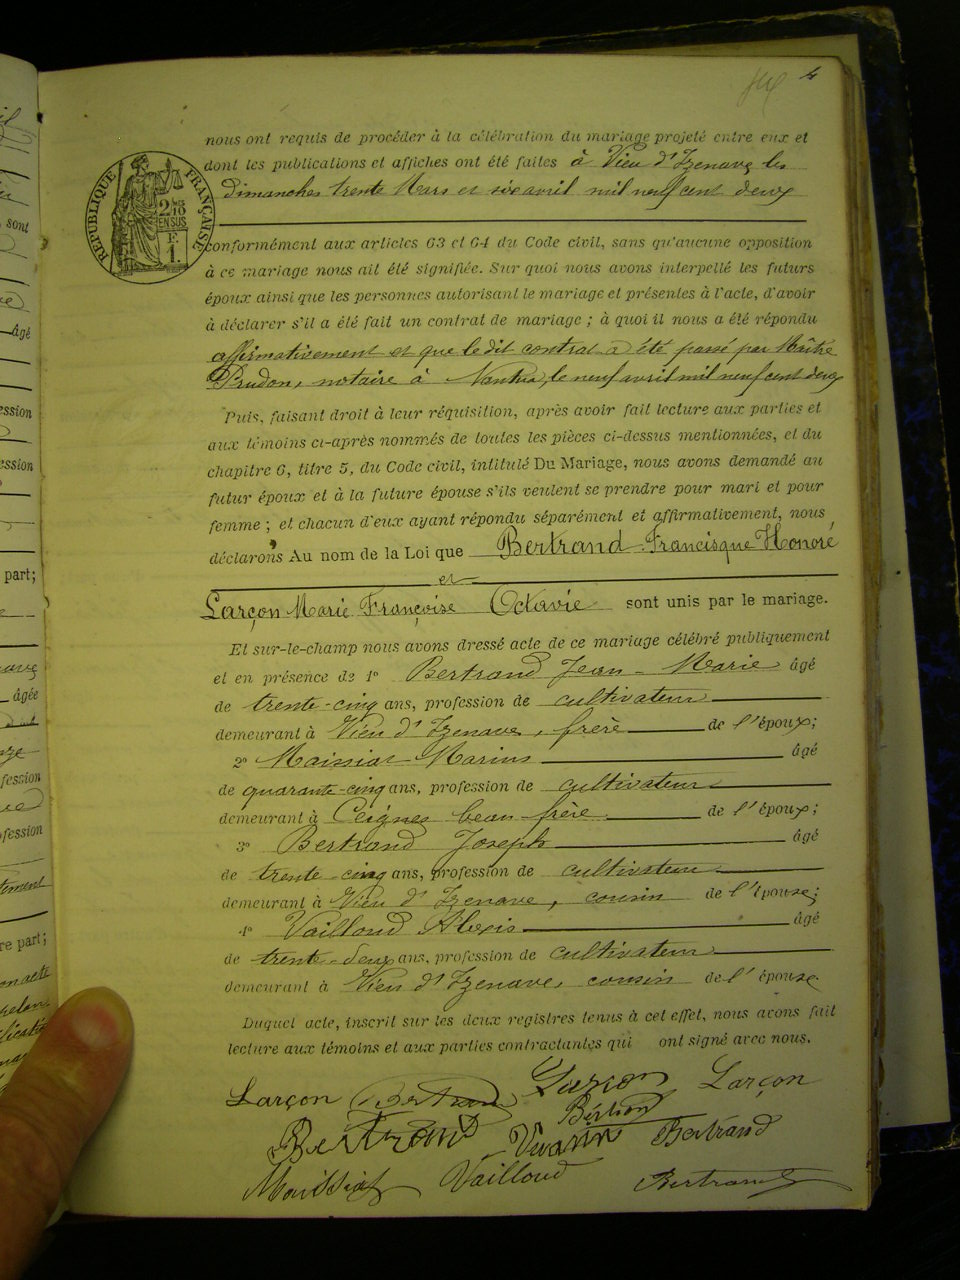 4
nous ont requis de procéder à la célébration du mariage projeté entre eux et
dont les publications et affiches ont été faites à Vieu d'Izenave les
dimanches trente Mars et six avril mil neuf cent deux
RÉPUBLIQUE FRANÇAISE
2/10
EN SUS
F.
1.
conformément aux articles 63 et 64 du Code civil, sans qu'aucune opposition
à ce mariage nous ait été signifiée. Sur quoi nous avons interpellé les futurs
époux ainsi que les personnes autorisant le mariage et présentes à l'acte, d'avoir
à déclarer s'il a été fait un contrat de mariage ; à quoi il nous a été répondu
affirmativement et que le dit contrat a été passé par Maître
Prudon, notaire à Nantua, le neuf avril mil neuf cent deux
Puis, faisant droit à leur réquisition, après avoir fait lecture aux parties et
aux témoins ci-après nommés de toutes les pièces ci-dessus mentionnées, et du
chapitre 6, titre 5, du Code civil, intitulé Du Mariage, nous avons demandé au
futur époux et à la future épouse s'ils veulent se prendre pour mari et pour
femme ; et chacun d'eux ayant répondu séparément et affirmativement, nous
déclarons Au nom de la Loi que Bertrand Francisque Honoré
et
Larçon Marie Françoise Octavie sont unis par le mariage.
Et sur-le-champ nous avons dressé acte de ce mariage célébré publiquement
et en présence de 1° Bertrand Jean-Marie âgé
de trente-cinq ans, profession de cultivateur
demeurant à Vieu d'Izenave, frère de l'époux;
2° Maissiat Marius âgé
de quarante-cinq ans, profession de cultivateur
demeurant à Ceignes beau-frère de l'époux;
3° Bertrand Joseph âgé
de trente-cinq ans, profession de cultivateur
demeurant à Vieu d'Izenave, cousin de l'épouse;
4° Vailloud Alexis âgé
de trente-deux ans, profession de cultivateur
demeurant à Vieu d'Izenave, cousin de l'épouse
Duquel acte, inscrit sur les deux registres tenus à cet effet, nous avons fait
lecture aux témoins et aux parties contractantes qui ont signé avec nous.
Larçon Bertrand Larçon Larçon
Bertrand Bertrand
Maissiat Vailloud Bertrand